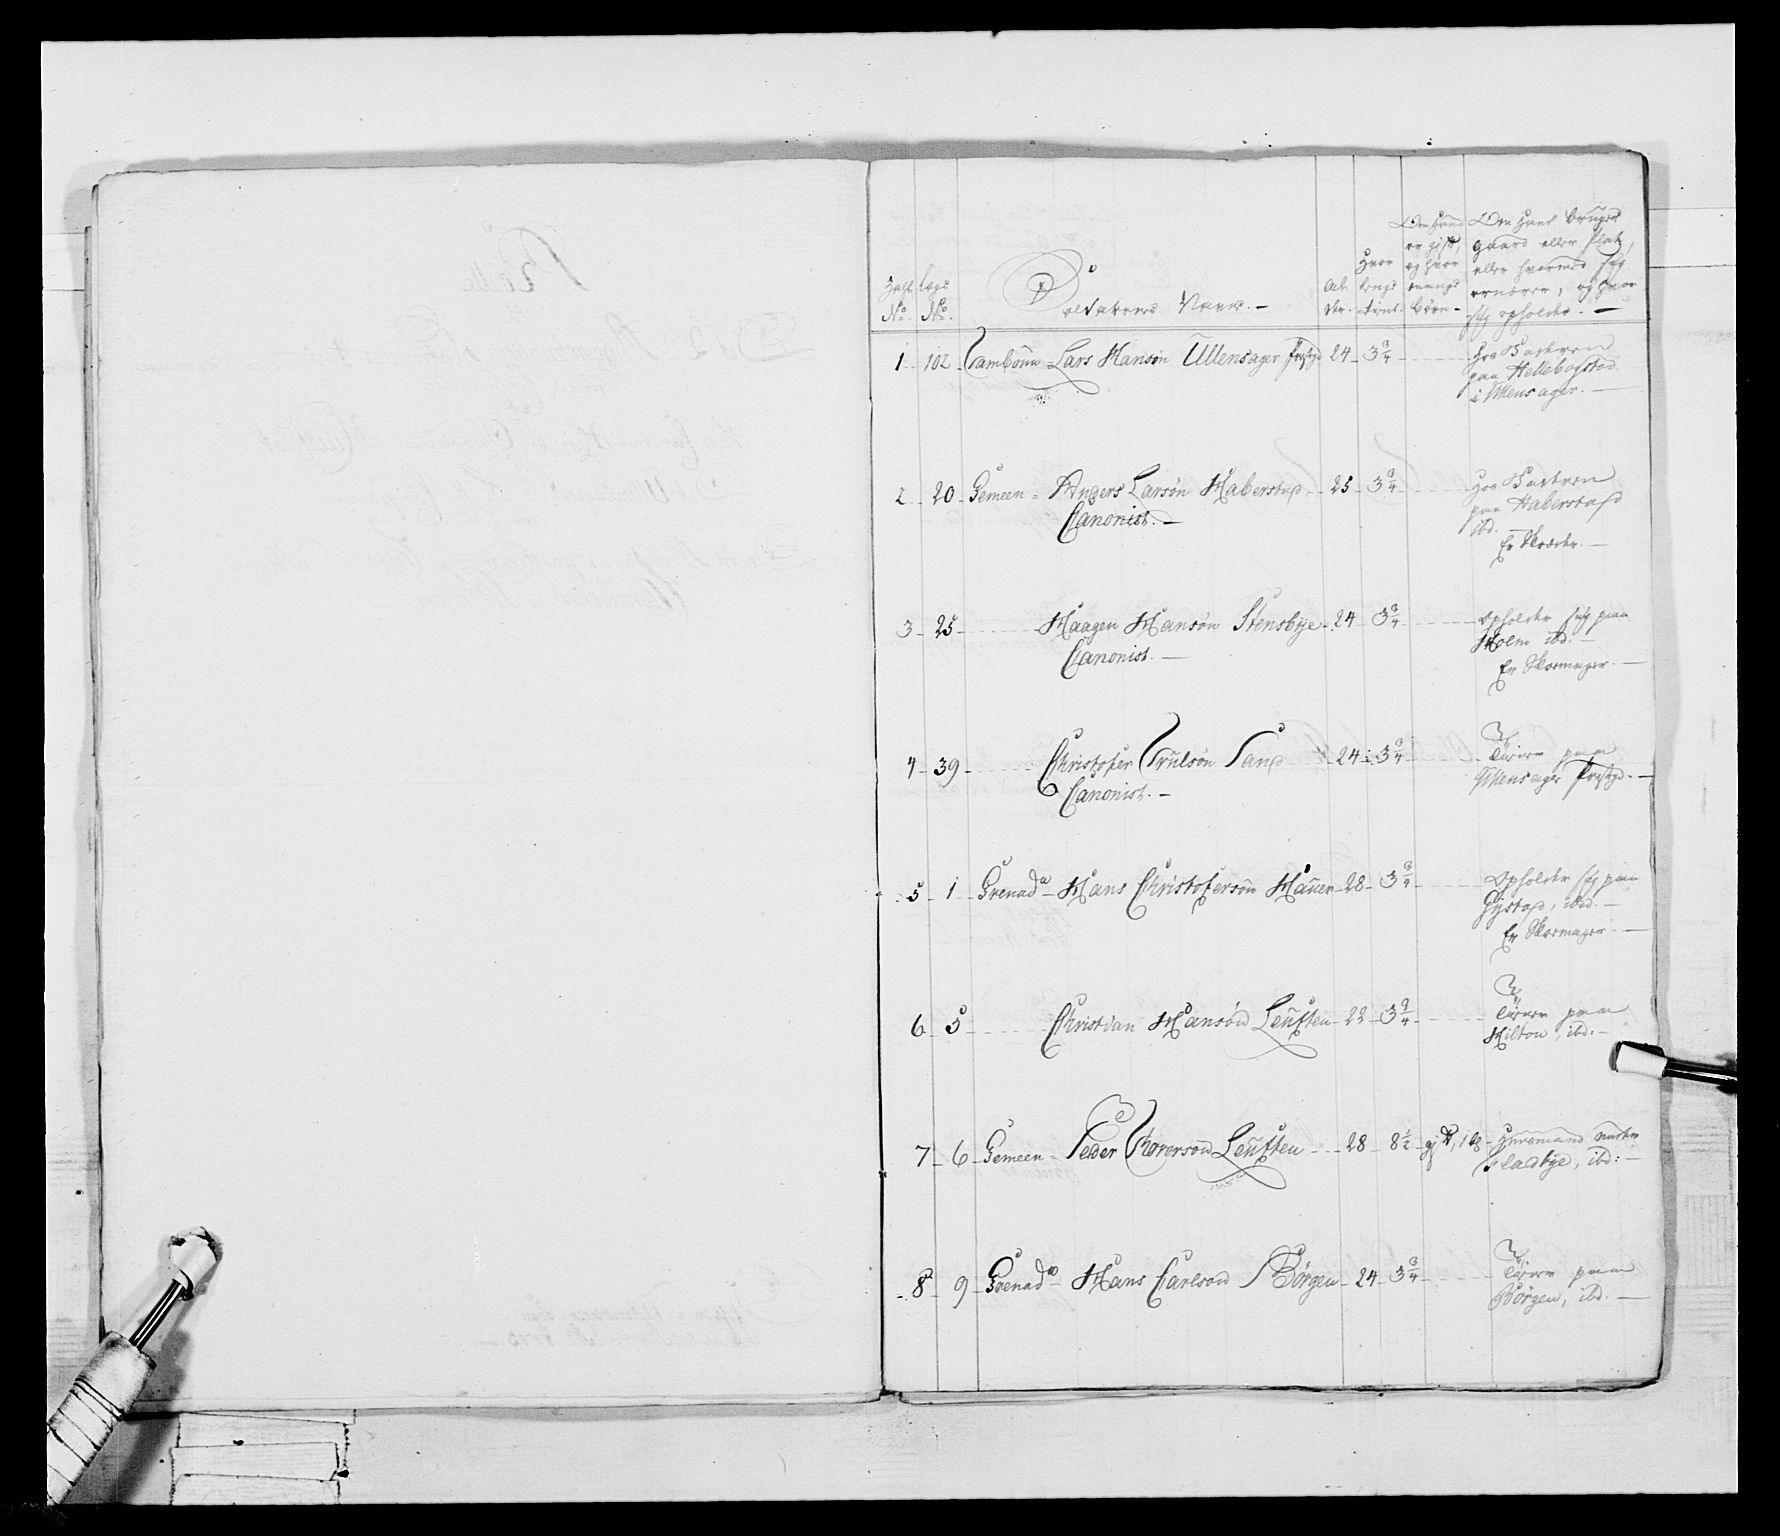 Zahl No. Lægs No. Soldaternes Navne. Alder. Hvor længe tient. Om hand er gift, og hvor mange Børn. Om Hand bruger gaard eller Plads, eller hvormed sig ernærer, og hvor sig opholder.
1 102 Tambour Lars Hansøn Ullensager Præstgd 24 3 3/4 Hos Faderen
paa Hellebogstad
i Ullensager.
2 20 Gemeen Anders Larsøn Haberstad 25 3 3/4 Hos Faderen
Canonist. paa Haberstad
ibd.
Er Skræder.
3 25 Haagen Hansøn Stensbye 24 3 3/4 Opholder sig paa
Canonist. Holm ibd.
Er Skoemager.
4 39 Christofer Trulsøn Sand 24 3 3/4 Tiener paa
Canonist. Ullensager Præstgd.
5 1 Grenad Hans Christofersøn Hauer 28 3 3/4 Opholder sig paa
Gystad, ibd.
Er Skoemager.
6 5 Christian Hansøn Leuften 22 3 3/4 Tiener paa
Hilton, ibd.
7 6 Gemeen Peder Thoresøn Leuften 28 8 1/2 gift, 1 B Huusmand under
Fladbye, ibd:
8 9 Grenad Hans Carlsøn Børgen 24 3 3/4 Tiener paa
Børgen, ibd.